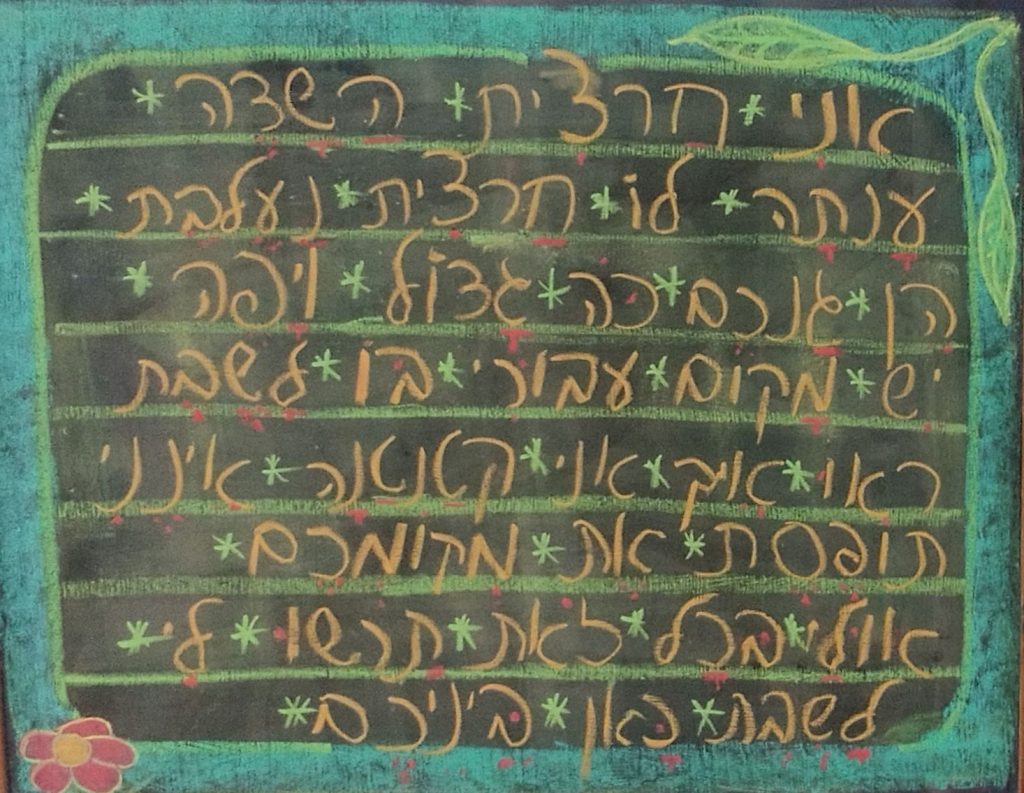 אני * חרצית * השדה *
ענתה * לו * חרצית * נעלבת *
הן * גנכם * כה * גדול * ויפה *
יש * מקום * עבורי * בו * לשבת
ראו * איך * אני * קטנטנה * אינני
תופסת * את * מקומכם *
אולי * בכל * זאת * תרשו * לי *
לשבת * כאן * ביניכם *